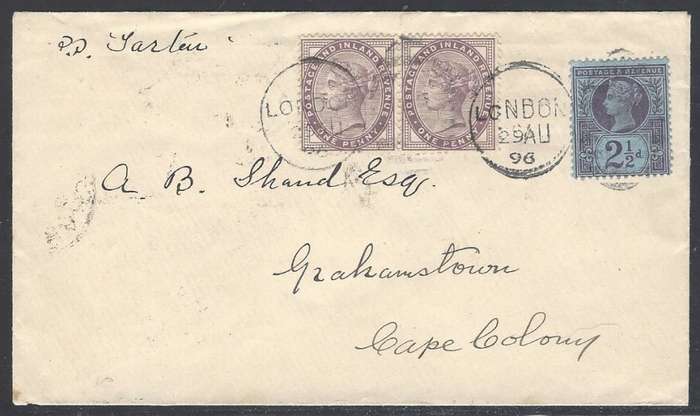 p.s. Tartar
POSTAGE AND INLAND REVENUE
ONE PENNY
POSTAGE AND INLAND REVENUE
ONE PENNY
LONDON
LONDON
29 AU
96
POSTAGE & REVENUE
2½d
A. B. Shand Esq.
Grahamstown
Cape Colony